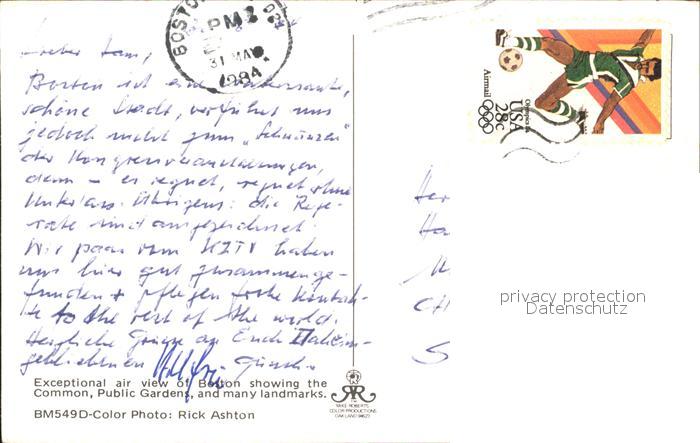 BOSTON
PM
31 MAY
1984
Olympics 84
USA
28c
Airmail
Lieber
Boston ist eine interessante,
schöne Stadt, verführt uns
jedoch nicht zum „Schwänzen"
der Kongressveranstaltungen,
denn – es regnet, regnet ohne
Unterlass. Übrigens: die Refe-
rate sind ausgezeichnet!
Wir paar vom haben
uns hier gut zusammenge-
funden + pflegen Kontak-
te to the rest of the world.
Herzliche Grüsse an Euch Daheim-
gebliebenen
Exceptional air view of Boston showing the
Common, Public Gardens, and many landmarks.
BM549D-Color Photo: Rick Ashton
MIKE ROBERTS
COLOR PRODUCTIONS
OAKLAND 94623
CH
privacy protection
Datenschutz